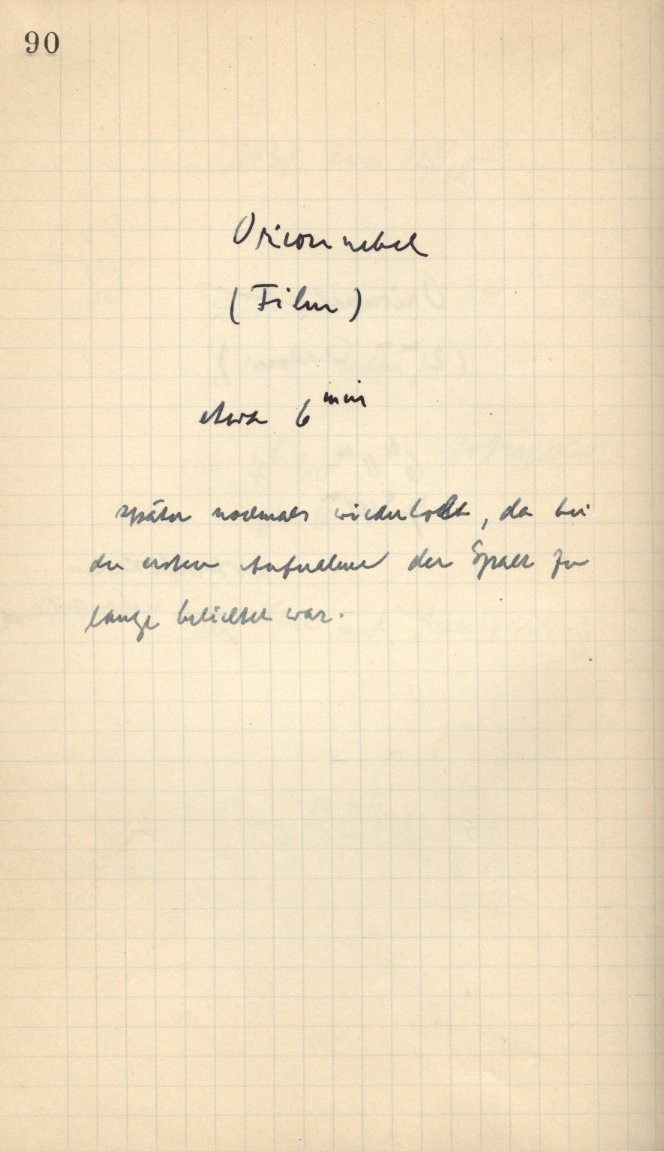 90
Orionnebel
(Film)
etwa 6 min
später nochmals wiederholt, da bei
der ersten Aufnahme der Spalt zu
lange belichtet war.